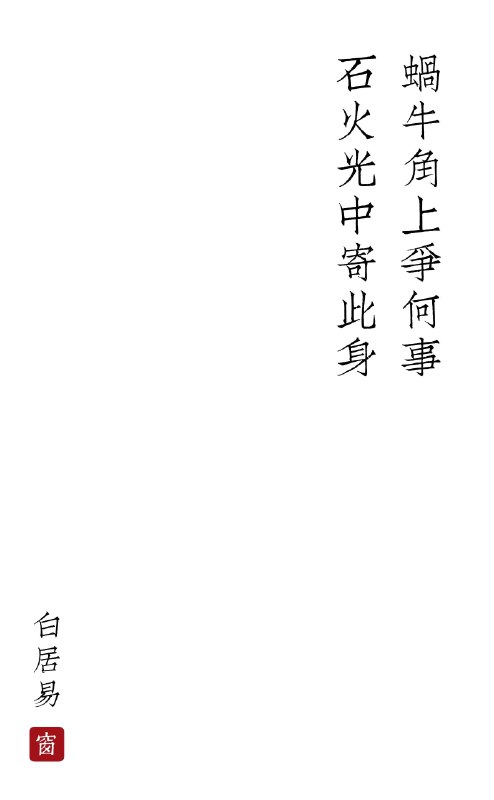 蝸牛角上爭何事
石火光中寄此身
白居易
窗